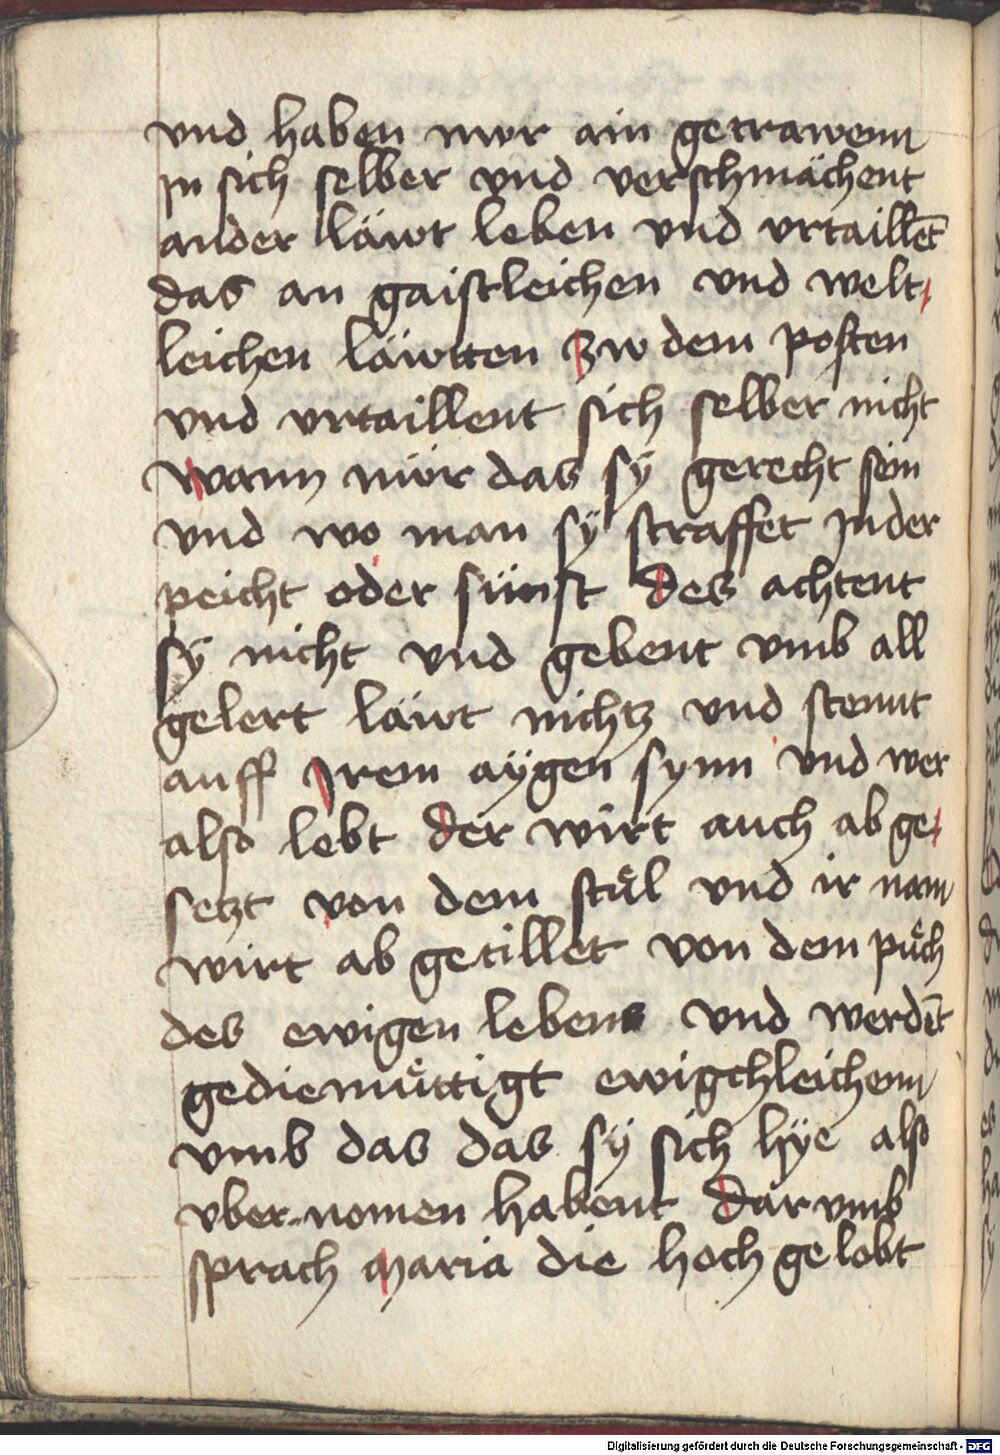 vnd haben nwr ain getrawenn
Jn sich selber vnd verschmächent
ander läwt leben vnd vrtaillet̄
das an gaistleichen vnd welt
leichen läwtten zw dem posten
vnd vrtaillent sich selber nicht
wann nür das sÿ gerecht sein
vnd wo man sÿ straffet Jn der
peicht oder sünst des achtent
sÿ nicht vnd gebent vmb all
gelert läwt nichtz vnd stennt
auff Jrem aÿgen synn vnd wer
also lebt der wirt auch ab ge
setzt von dem stůl vnd ir nam
wirt ab getillet von dem půch
des ewigen lebens vnd werdēt
gediemůttigt ewigchleichenn
vmb das das sÿ sich hÿe also
vber nomen habent Dar vmb
sprach Maria die hoch gelobt
Digitalisierung gefördert durch die Deutsche Forschungsgemeinschaft - DFG